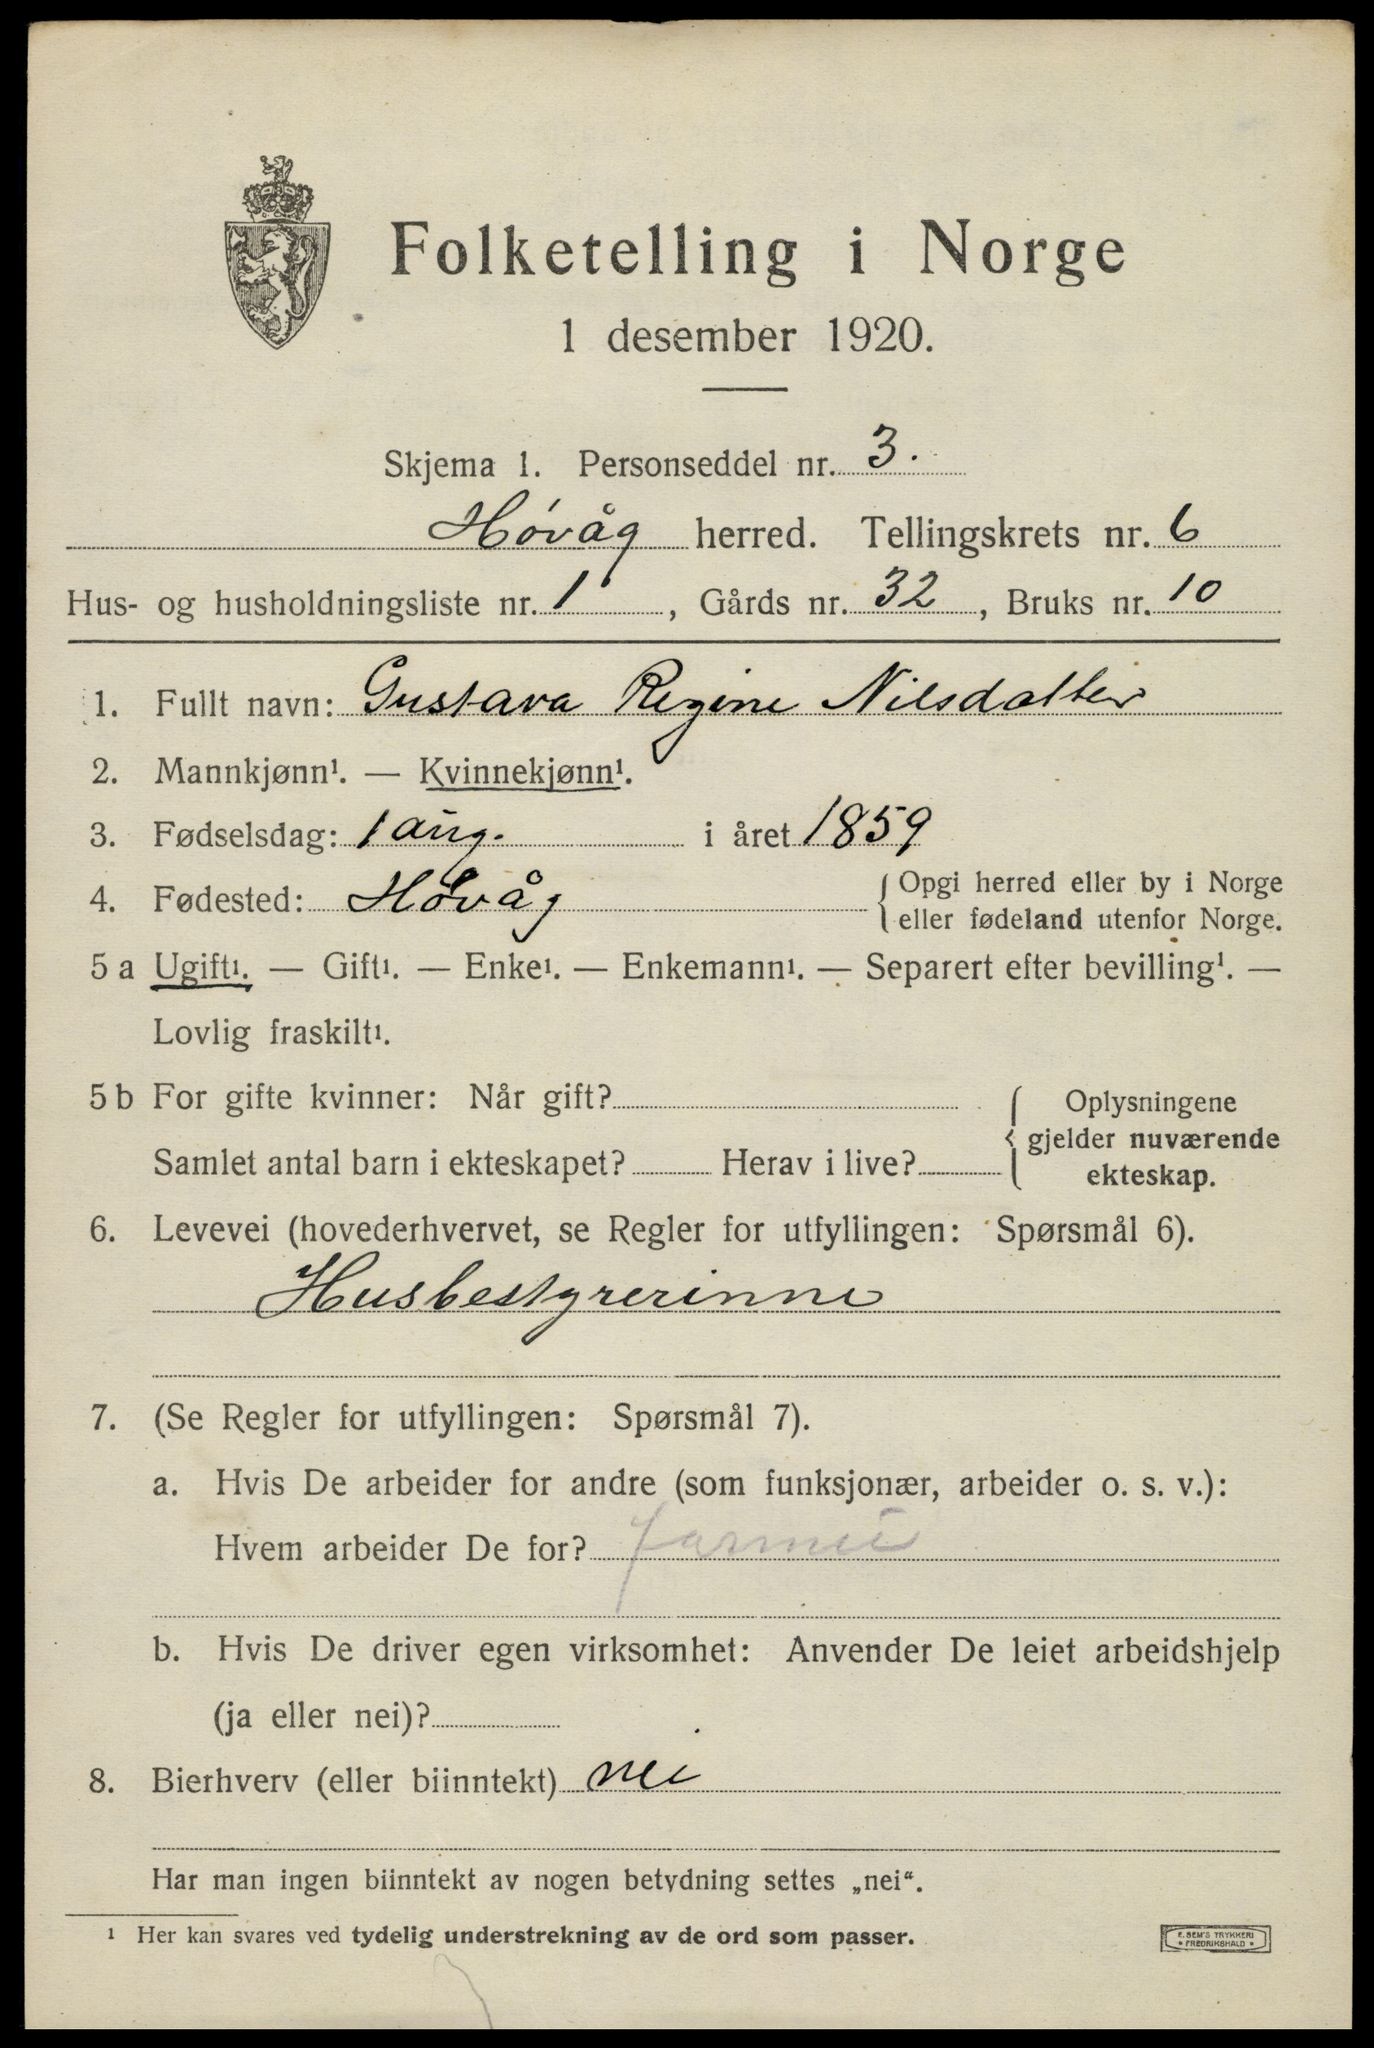 Folketelling i Norge
1 desember 1920.
Skjema 1. Personseddel nr. 3.
Høvåg herred. Tellingskrets nr. 6
Hus- og husholdningsliste nr. 1, Gårds nr. 32, Bruks nr. 10
1. Fullt navn: Gustava Regine Nilsdatter
2. Mannkjønn¹. — Kvinnekjønn¹.
3. Fødselsdag: 1 aug. i året 1859
4. Fødested: Høvåg { Opgi herred eller by i Norge
eller fødeland utenfor Norge.
5 a Ugift¹. — Gift¹. — Enke¹. — Enkemann¹. — Separert efter bevilling¹. —
Lovlig fraskilt¹.
5 b For gifte kvinner: Når gift?
Samlet antal barn i ekteskapet? Herav i live?
{ Oplysningene
gjelder nuværende
ekteskap.
6. Levevei (hovederhvervet, se Regler for utfyllingen: Spørsmål 6).
Husbestyrerinne
7. (Se Regler for utfyllingen: Spørsmål 7).
a. Hvis De arbeider for andre (som funksjonær, arbeider o. s. v.):
Hvem arbeider De for?
b. Hvis De driver egen virksomhet: Anvender De leiet arbeidshjelp
(ja eller nei)?
8. Bierhverv (eller biinntekt) nei
Har man ingen biinntekt av nogen betydning settes „nei“.
¹ Her kan svares ved tydelig understrekning av de ord som passer.
E. SEM'S TRYKKERI
• FREDRIKSHALD •